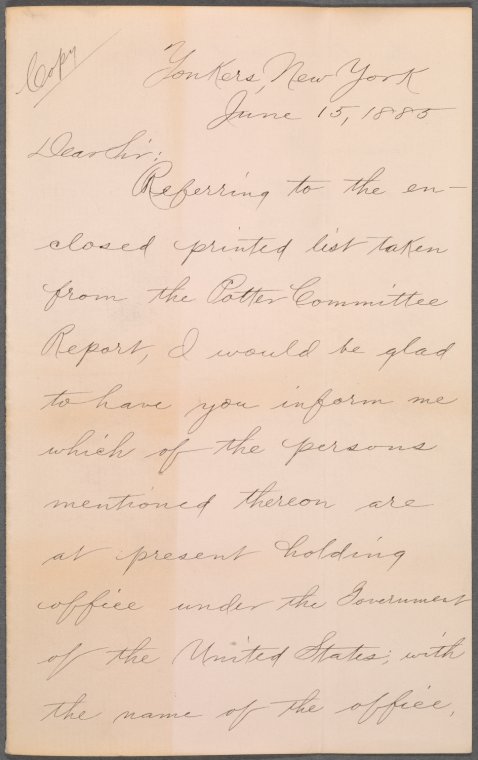 Copy
Yonkers, New York
June 15, 1885
Dear Sir:
Referring to the en-
closed printed list taken
from the Potter Committee
Report, I would be glad
to have you inform me
which of the persons
mentioned thereon are
at present holding
office under the Government
of the United States; with
the name of the office,